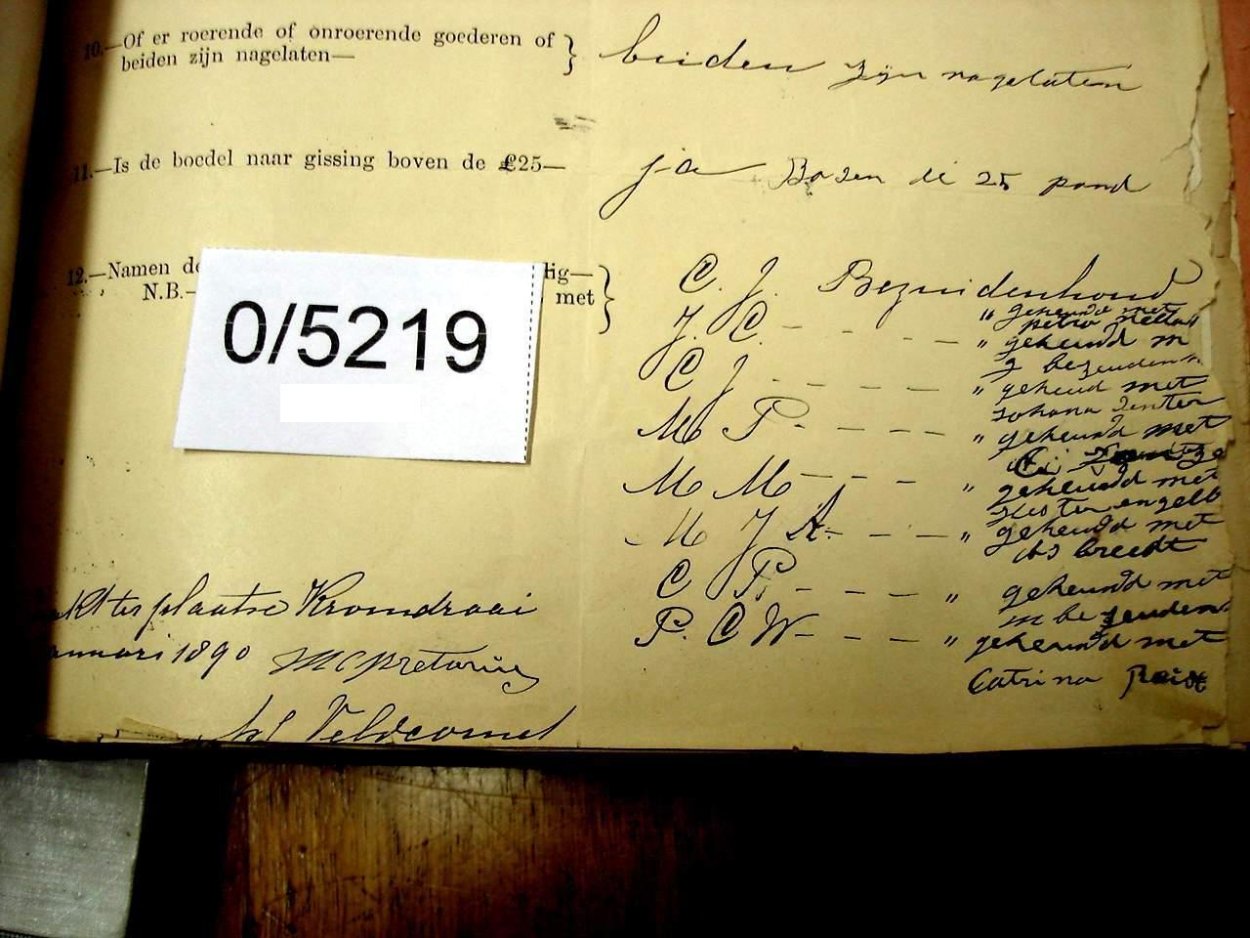 10.—Of er roerende of onroerende goederen of
beiden zijn nagelaten—
beiden zijn nagelaten
11.—Is de boedel naar gissing boven de £25—
ja Boven de 25 pond
12.—Namen de
lig—
N.B.—
met
0/5219
C. J. Bezuidenhoud
" geheurd met
J. C. - - - - - "
petro
geheurd m
C J - - - - - "
J bezuiden
geheud met
M P - - - - - "
Johana
geheurd met
M M - - - - "
geheurd met
Hester engelb
M J A - - - - "
geheurd met
breedt
C P. - - - -
geheurd met
m bezeuden
P. C W - - - - "
geheurd met
Catrina
akt ter plaatse Kromdraai
anuari 1890 M C Pretorius
Veldcornet